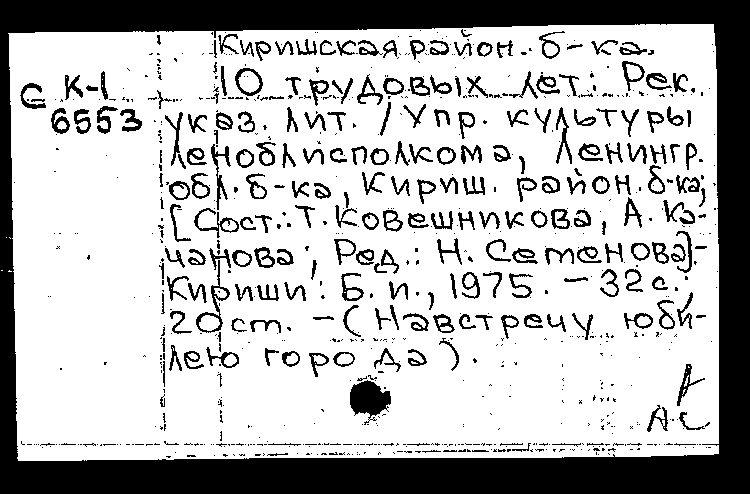 Киришская район. б-ка.
С К-1 10 трудовых лет: Рек.
6553 указ. лит. / Упр. культуры
Леноблисполкома, Ленингр.
обл. б-ка, Кириш. район. б-ка;
[Сост.: Т. Ковешникова, А. Ка-
чанова; Ред.: Н. Семенова].-
Кириши: Б. и., 1975. - 32 с.;
20 cm. - (Навстречу юби-
лею города).